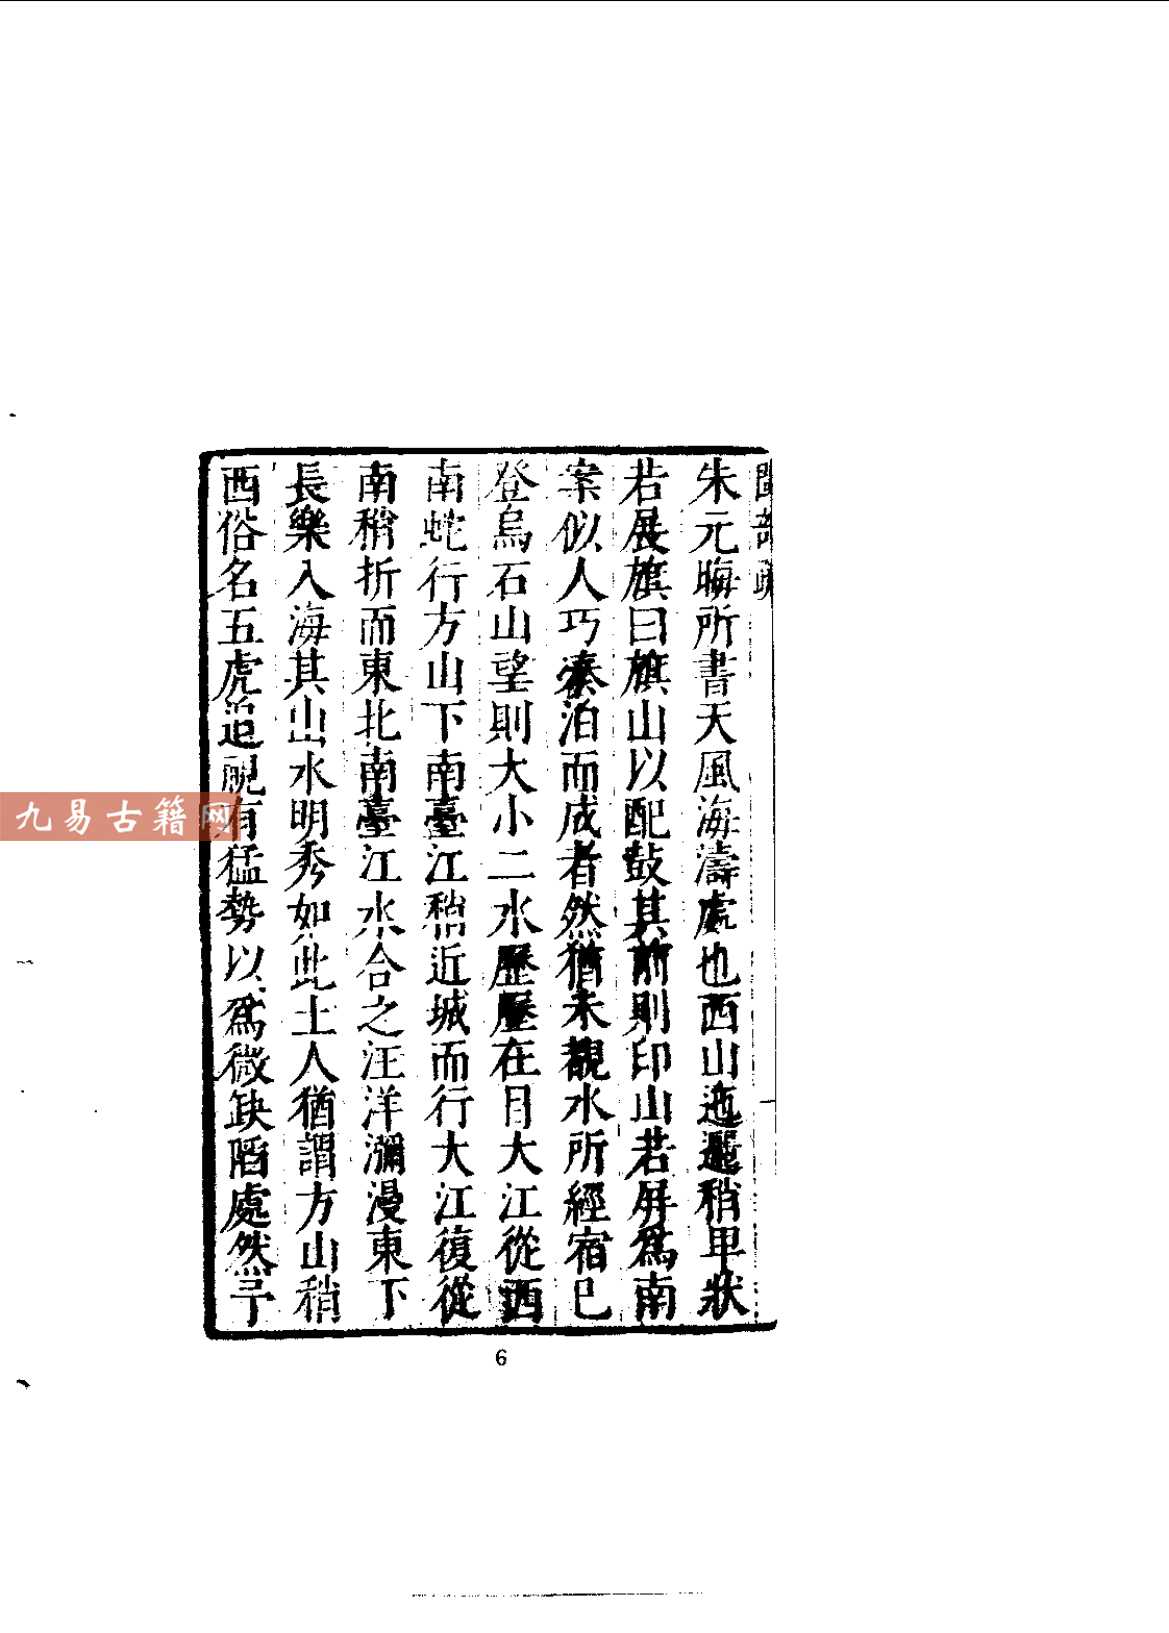 閩部疏
朱元晦所書天風海濤處也西山迤邐稍卑狀
若展旗曰旗山以配鼓其前則印山若屏為南
案似人巧湊泊而成者然猶未覩水所經宿巳
登烏石山望則大小二水歷歷在目大江從西
南蛇行方山下南臺江稍近城而行大江復從
南稍折而東北南臺江水合之汪洋瀰漫東下
長樂入海其山水明秀如此土人猶謂方山稍
西俗名五虎迫視有猛勢以為微缺陷處然予
6
九易古籍网